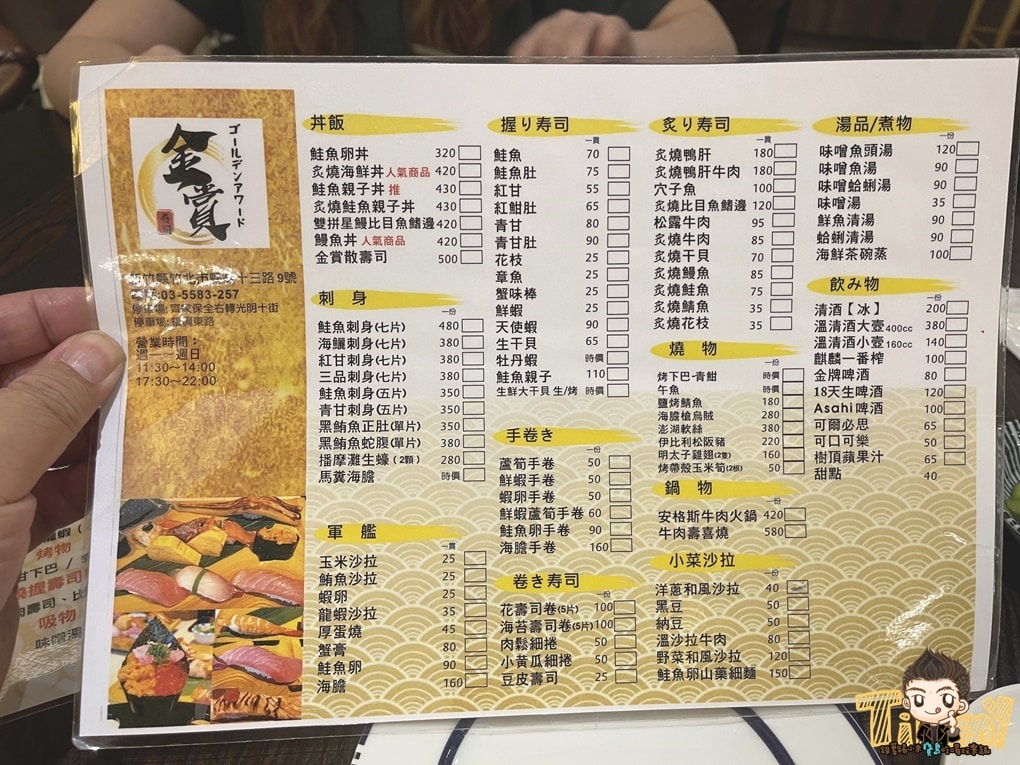 金賞
ゴールデンアワード
寿司
十三路 9號
03-5583-257
停車場:齊家保全右轉光明十街
停車場:福興東路
營業時間：
週一～週日
11:30～14:00
17:30～22:00
丼飯
鮭魚卵丼 320
炙燒海鮮丼 人氣商品 420
鮭魚親子丼 推 430
炙燒鮭魚親子丼 430
雙拼星鰻比目魚鰭邊 420
鰻魚丼 人氣商品 420
金賞散壽司 500
刺身
一份
鮭魚刺身(七片) 480
海鱺刺身(七片) 380
紅甘刺身(七片) 380
三品刺身(七片) 380
鮭魚刺身(五片) 350
青甘刺身(五片) 350
黑鮪魚正肚(單片) 350
黑鮪魚蛇腹(單片) 380
播摩灘生蠔(2顆) 280
馬糞海膽 時價
軍艦
一貫
玉米沙拉 25
鮪魚沙拉 25
蝦卵 25
龍蝦沙拉 35
厚蛋燒 45
蟹膏 80
鮭魚卵 90
海膽 160
握り寿司
一貫
鮭魚 70
鮭魚肚 75
紅甘 55
紅魽肚 65
青甘 80
青甘肚 90
花枝 25
章魚 25
蟹味棒 25
鮮蝦 25
天使蝦 90
生干貝 65
牡丹蝦 時價
鮭魚親子 110
生鮮大干貝 生/烤 時價
手卷き
一份
蘆筍手卷 50
鮮蝦手卷 50
蝦卵手卷 50
鮮蝦蘆筍手卷 60
鮭魚卵手卷 90
海膽手卷 160
卷き寿司
一份
花壽司卷(5片) 100
海苔壽司卷(5片) 100
肉鬆細捲 50
小黃瓜細捲 50
豆皮壽司 25
炙り寿司
一貫
炙燒鴨肝 180
炙燒鴨肝牛肉 180
穴子魚 100
炙燒比目魚鰭邊 120
松露牛肉 95
炙燒牛肉 85
炙燒干貝 70
炙燒鰻魚 85
炙燒鮭魚 75
炙燒鯖魚 35
炙燒花枝 35
燒物
一份
烤下巴-青魽 時價
午魚 時價
鹽烤鯖魚 180
海膽槍烏賊 280
澎湖軟絲 380
伊比利松阪豬 220
明太子雞翅(2隻) 160
烤帶殼玉米筍(2根) 50
鍋物
一份
安格斯牛肉火鍋 420
牛肉壽喜燒 580
小菜沙拉
一份
洋蔥和風沙拉 40
黑豆 50
納豆 50
溫沙拉牛肉 80
野菜和風沙拉 120
鮭魚卵山藥細麵 150
湯品/煮物
一份
味噌魚頭湯 120
味噌魚湯 90
味噌蛤蜊湯 90
味噌湯 35
鮮魚清湯 90
蛤蜊清湯 90
海鮮茶碗蒸 100
飲み物
一份
清酒【冰】 200
溫清酒大壺400cc 380
溫清酒小壺160cc 140
麒麟一番榨 100
金牌啤酒 80
18天生啤酒 120
Asahi啤酒 100
可爾必思 65
可口可樂 50
樹頂蘋果汁 65
甜點 40
烤物
甘下巴 /
握壽司
吸物
味噌湯